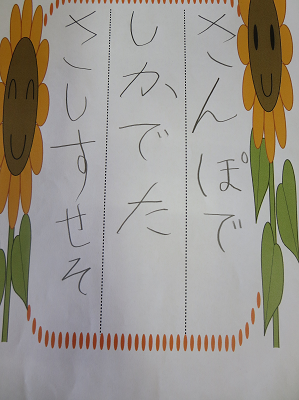 さんぽで
しかでた
さしすせそ